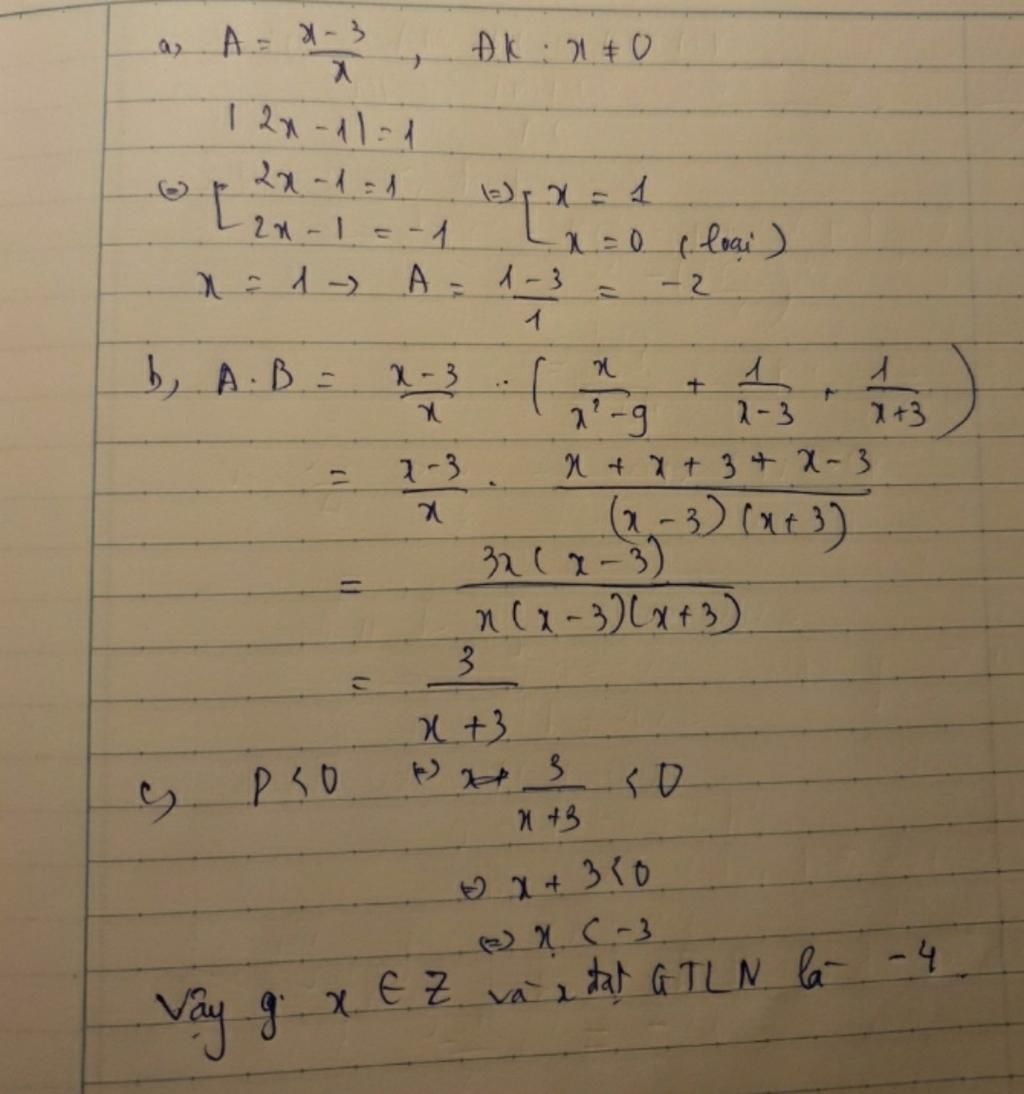 a, A = (x - 3)/x , ĐK : x ≠ 0
| 2x - 1 | = 1
(=) [ 2x - 1 = 1 (=) [ x = 1
2x - 1 = -1 x = 0 (loại)
x = 1 → A = (1 - 3)/1 = -2
b, A . B = (x - 3)/x . ( x/(x² - 9) + 1/(x - 3) + 1/(x + 3) )
= (x - 3)/x . (x + x + 3 + x - 3)/((x - 3)(x + 3))
= 3x(x - 3)/(x(x - 3)(x + 3))
= 3/(x + 3)
c, P < 0 (=) 3/(x + 3) < 0
(=) x + 3 < 0
(=) x < -3
Vậy x ∈ Z và x đạt GTLN là -4